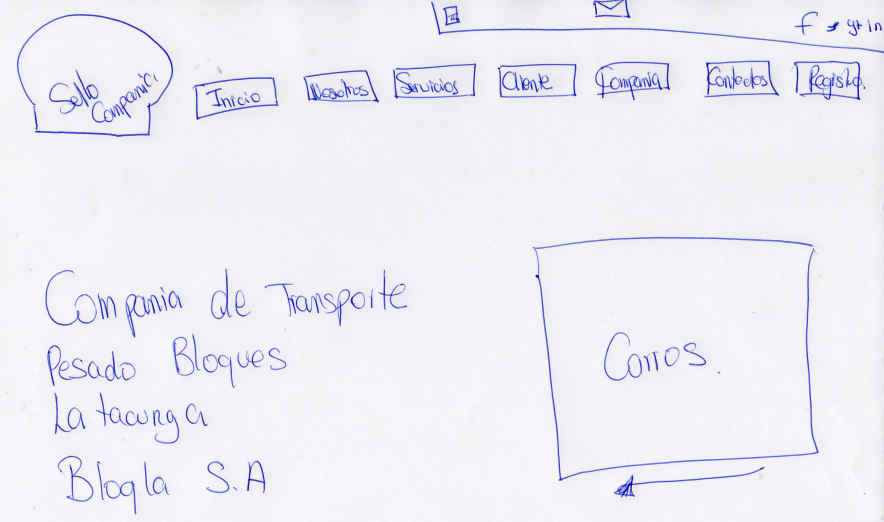 f g+ in
Sello
Compania
Inicio
Nosotros
Servicios
Cliente
Compania
Contactos
Registro.
Compania de Transporte
Pesado Bloques
Latacunga
Bloqla S.A
Carros.